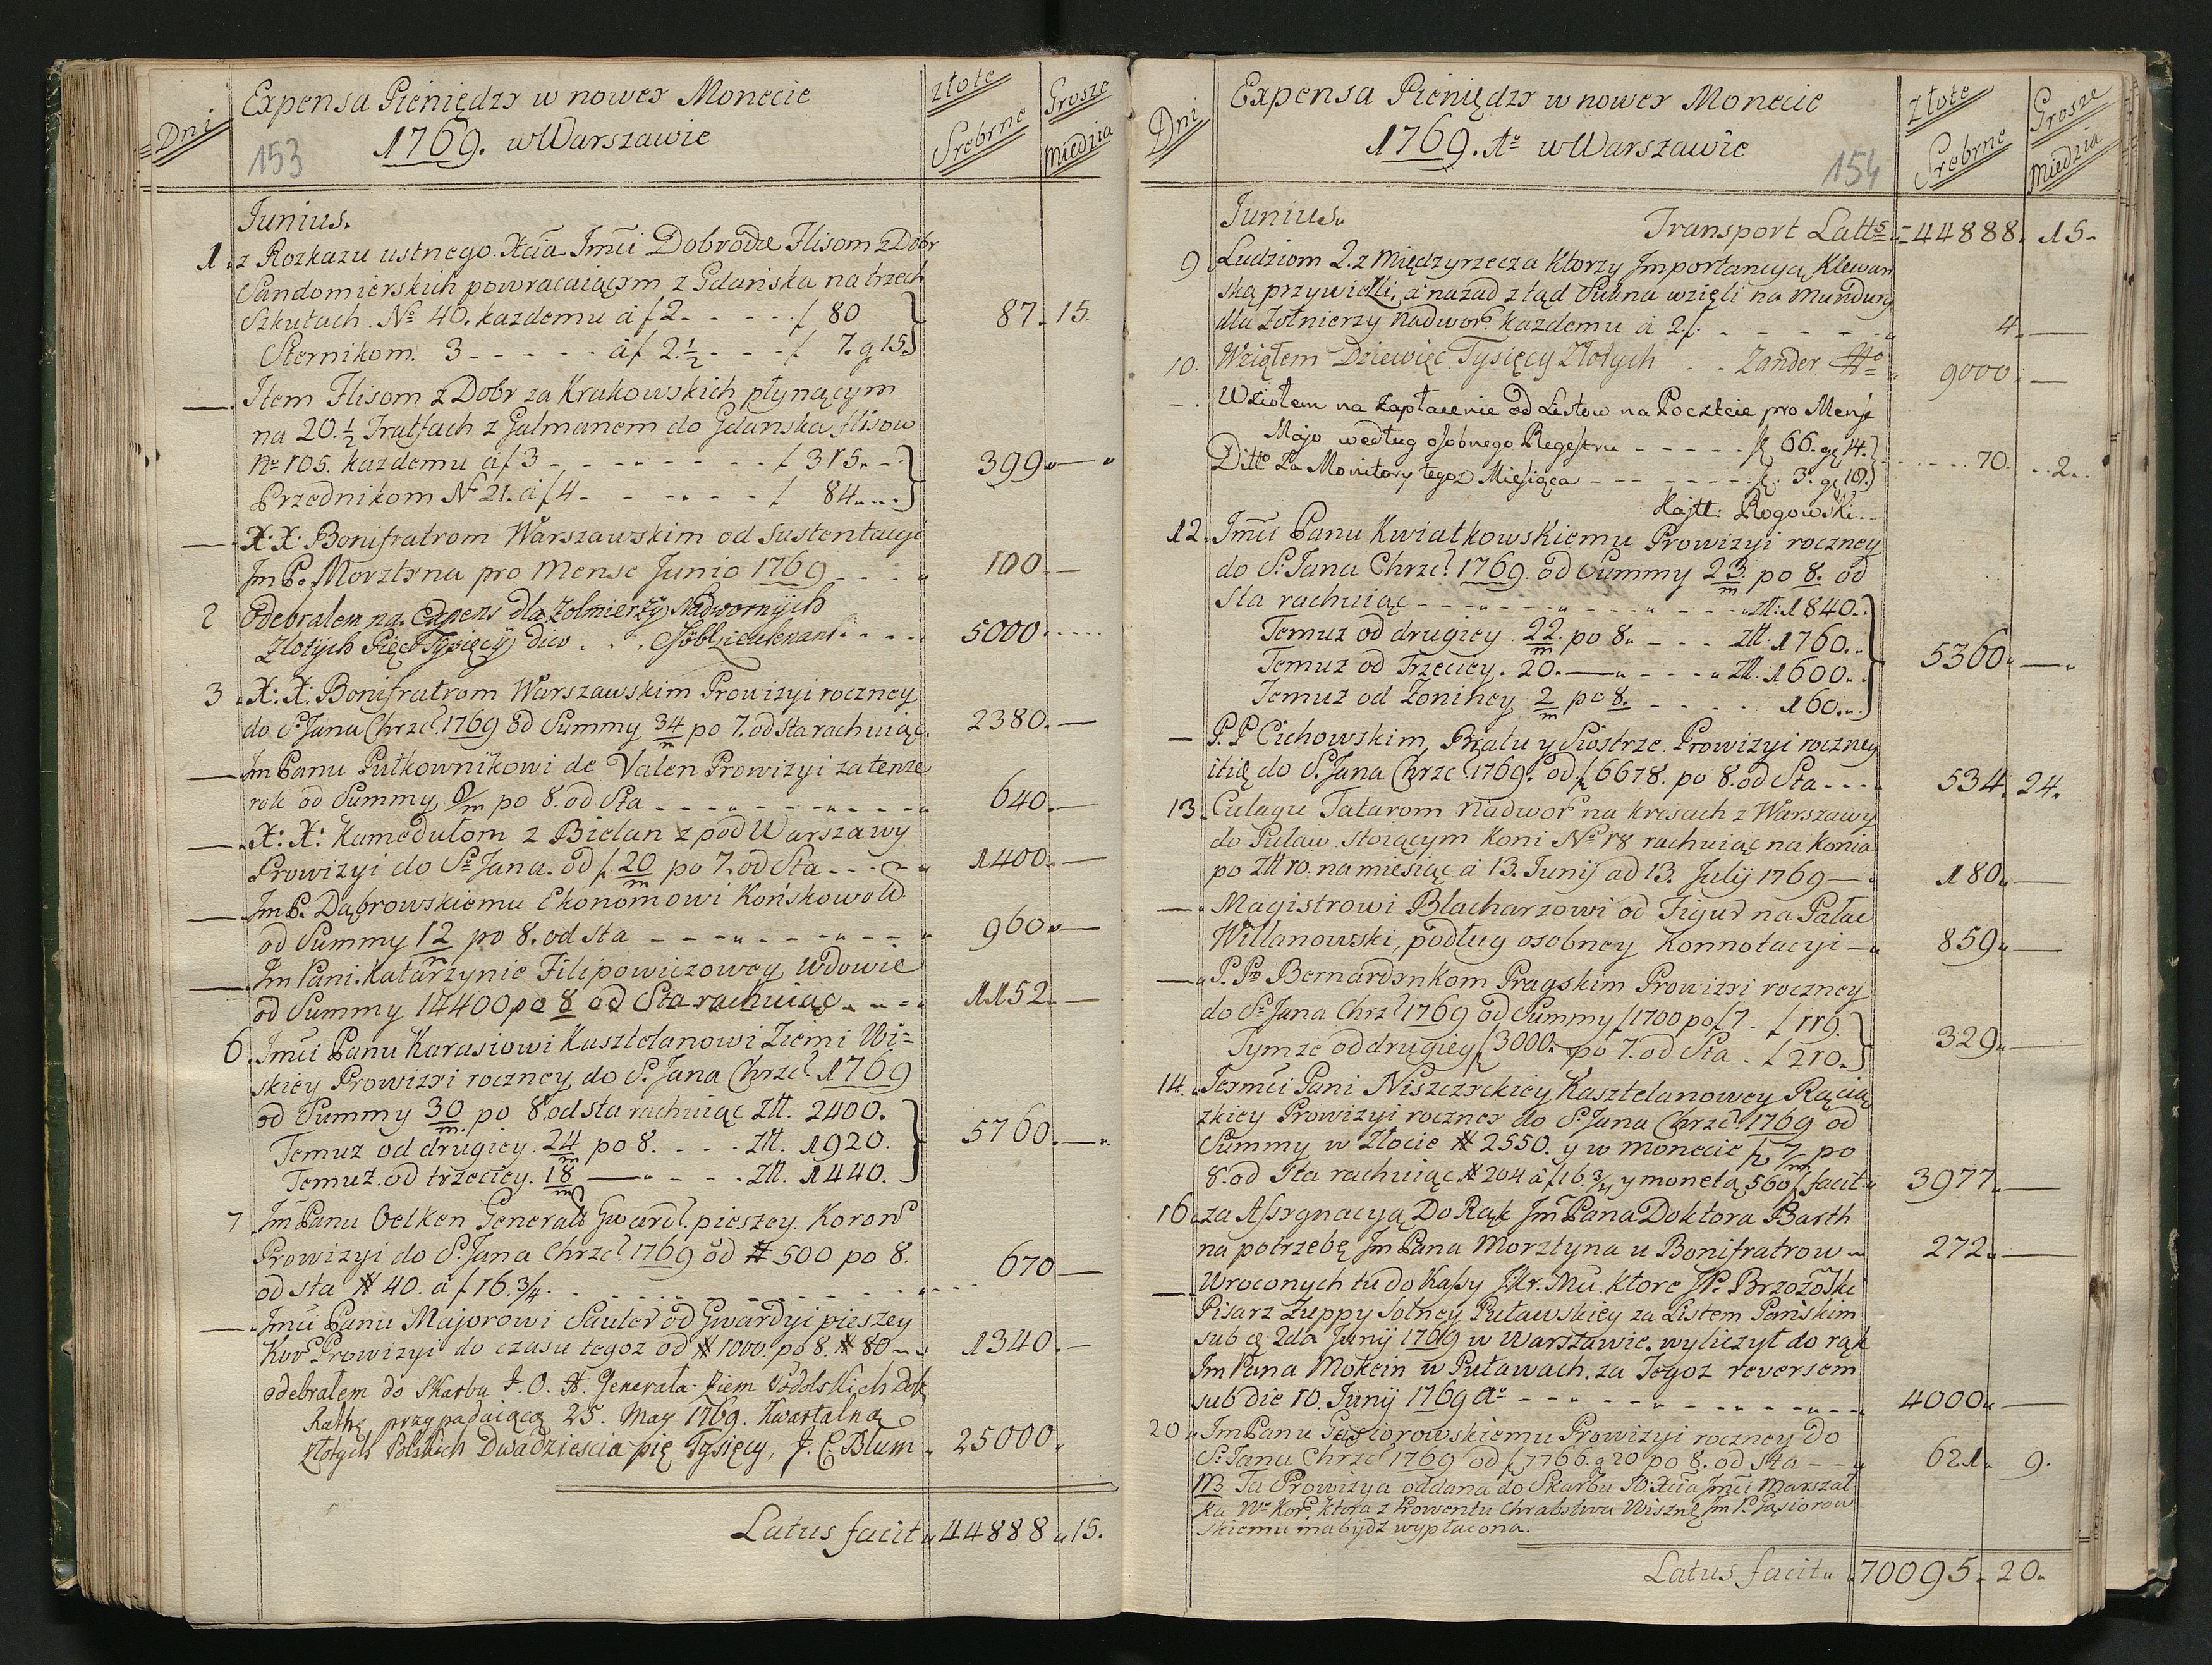 Dni
Expensa Pieniędzy w nowey Monecie
1769. w Warszawie
153
złote
Srebrne
Grosze
Miedzią
Junius.
1. z Rozkazu ustnego Xcia Jmci Dobrodz Flisom z Dobr
Sandomierskich powracaiącym z Gdańska na trzech
Szkutach. No 40. kazdemu á f 2 - - - - - f 80
87. 15.
Sternikom. 3 - - - - - á f 2. 1/2 - - - f 7. g 15.
Item Flisom z Dobr za Krakowskich płynącym
na 20. 1/2 Tratfach z Galmanem do Gdanska flisow
No 105. kazdemu á f 3 - - - - - - - - f 315. - -
399. —
Przednikom No 21. á f 4 - - - - - - f 84. - -
X: X: Bonifratrom Warszawskim od Sustentacyi
Jm P. Morztyna pro Mense Junio 1769 - - - -
100. —
2 Odebralem na Expens dla Zolnierzy Nadwornych
Zlotych Pięc Tysięcy dico . . .
5000 . . . .
3. X: X: Bonifratrom Warszawskim Prowizyi roczney
do S. Jana Chrzc. 1769 od Summy 34/m po 7. od sta rachuiąc.
2380. —
Jm Panu Pułkownikowi de Valen Prowizyi za tenze
rok od Summy 8/m po 8. od Sta - - - - - - - - -
640. —
X: X: Kamedułom z Bielan z pod Warszawy
Prowizyi do S. Jana. od f 20/m po 7. od Sta - - - -
1400. —
Jm P. Dąbrowskiemu Ekonomowi Końskowol.
od Summy 12/m po 8. od sta - - - - - - - -
960. —
Jm Pani Katarzynie Filipowiczowey Wdowie
od Summy 14400 po 8 od Sta rachuiąc - - - -
1152. —
6. Jmci Panu Karasiowi Kasztelanowi Ziemi Wi=
skiey Prowizyi roczney do S. Jana Chrzc. 1769
od Summy 30/m. po 8. od sta rachuiąc Złł. 2400.
Temuz od drugiey. 24/m po 8. - - - Złł. 1920.
5760. —
Temuz. od trzeciey. 18/m — - - - Złł. 1440.
7 Jm Panu Oelken Generało Gward. pieszey. Koron
Prowizyi do S. Jana Chrzc. 1769 od # 500 po 8.
670 —
od sta # 40. á f 16. 3/4. - - - - - - - -
Jmci Panu Majorowi Sauter od Gwardyi pieszey
Kor. Prowizyi do czasu tegoz od # 1000. po 8. # 80 - -
1340. —
odebrałem do Skarbu J. O. X. Generała Ziem Podolskich
Rathę przypadaiącą 25. May 1769. Kwartalną
złotych Polskich Dwadziescia pię Tysięcy, J. C. Blum.
25000.
Latus facit 44888 15.
Dni
Expensa Pieniędzy w nowey Monecie
1769. Ao w Warszawie
154
Złote
Srebrne
Grosze
Miedzia
Junius.
Transport Latts - 44888. 15.
9 Ludziom 2. z Międzyrzecza ktorzy Importancyą Klewań
ską przywieźli, á nazad z tąd Sukna wzięli na Mundury
dla Żołnierzy Nadwor. kazdemu á 2 f. - - - - - -
4. —
10. Wziąłem Dziewięć Tysięcy Złotych . . Zander
9000. —
Wziołem na zapłacenie od Listow na Poczcie pro Mense
Majo według osobnego Regestru - - - - - f 66. g 14.
70. 2.
Ditto Za Monitory tegoz Miesiąca - - - - - - f. 3. g 18.
Kajtt: Rogowski
12. Jmci Panu Kwiatkowskiemu Prowizyi roczney
do S. Jana Chrzc. 1769. od Summy 23/m po 8. od
Sta rachuiąc - - - - - - - - - złł: 1840.
Temuz od drugiey. 22/m. po 8. - - - złł. 1760.
5360. —
Temuz od Trzeciey. 20. — - - - Złł. 1600.
Temuz od Zoniney 2/m po 8. - - - - 160.
P. P. Cichowskim, Bratu y Siostrze Prowizyi roczney
itię do S. Jana Chrzc. 1769. od f 6678. po 8. od Sta - - -
534. 24.
13. Culagu Tatarom Nadwor na kresach z Warszawy
do Puław stoiącym koni No 18 rachuiąc na konia
po Złł 10. na miesiąc á 13. Junij ad 13. Julij 1769 —
180. —
Magistrowi Blacharzowi od Figur na Pałac
Willanowski, podług osobney Konnotacyi —
859. —
P. P. Bernardynkom Pragskim Prowizyi roczney
do S. Jana Chrz. 1769 od Summy f 1700 po f 7. f 119.
329. —
Tymze od drugiey f 3000. po 7. od Sta . f 210.
14. Jeymci Pani Niszczyckiey Kasztelanowey Raciąz
zkiey Prowizyi roczney do S. Jana Chrzc. 1769 od
Summy w Złocie # 2550. y w monecie f 7/m po
8. od Sta rachuiąc # 204 á f 16. 3/4 y monetą 560 f facit
3977. —
16. za Assygnacyą Do Rąk Jm Pana Doktora Barth
na potrzebę Jm Pana Morztyna u Bonifratrow -
272. —
Wroconych tu do Kassy Skr. Mci. ktore JP. Brzozowski
Pisarz Żuppy Solney Puławskiey za Listem Pańskim
sub 2da Junij 1769 w Warszawie. wyliczył do rąk
Jm Pana Mokcin w Puławach. za Tegoz reversem
sub die 10. Junij 1769 ao - - - - - - - -
4000. —
20. Jm Panu Gąsiorowskiemu Prowizyi roczney do
S. Jana Chrzc. 1769 od f 7766. g 20 po 8. od sta - -
621. 9.
NB Ta Prowizya oddana do Skarbu JO. Xcia Jmci Marszał
ka Wo Kor. ktora z Prowentu Chrabstwa Wiszni Jm P. Gąsiorow
skiemu ma bydź wypłacona.
Latus facit 70095. 20.